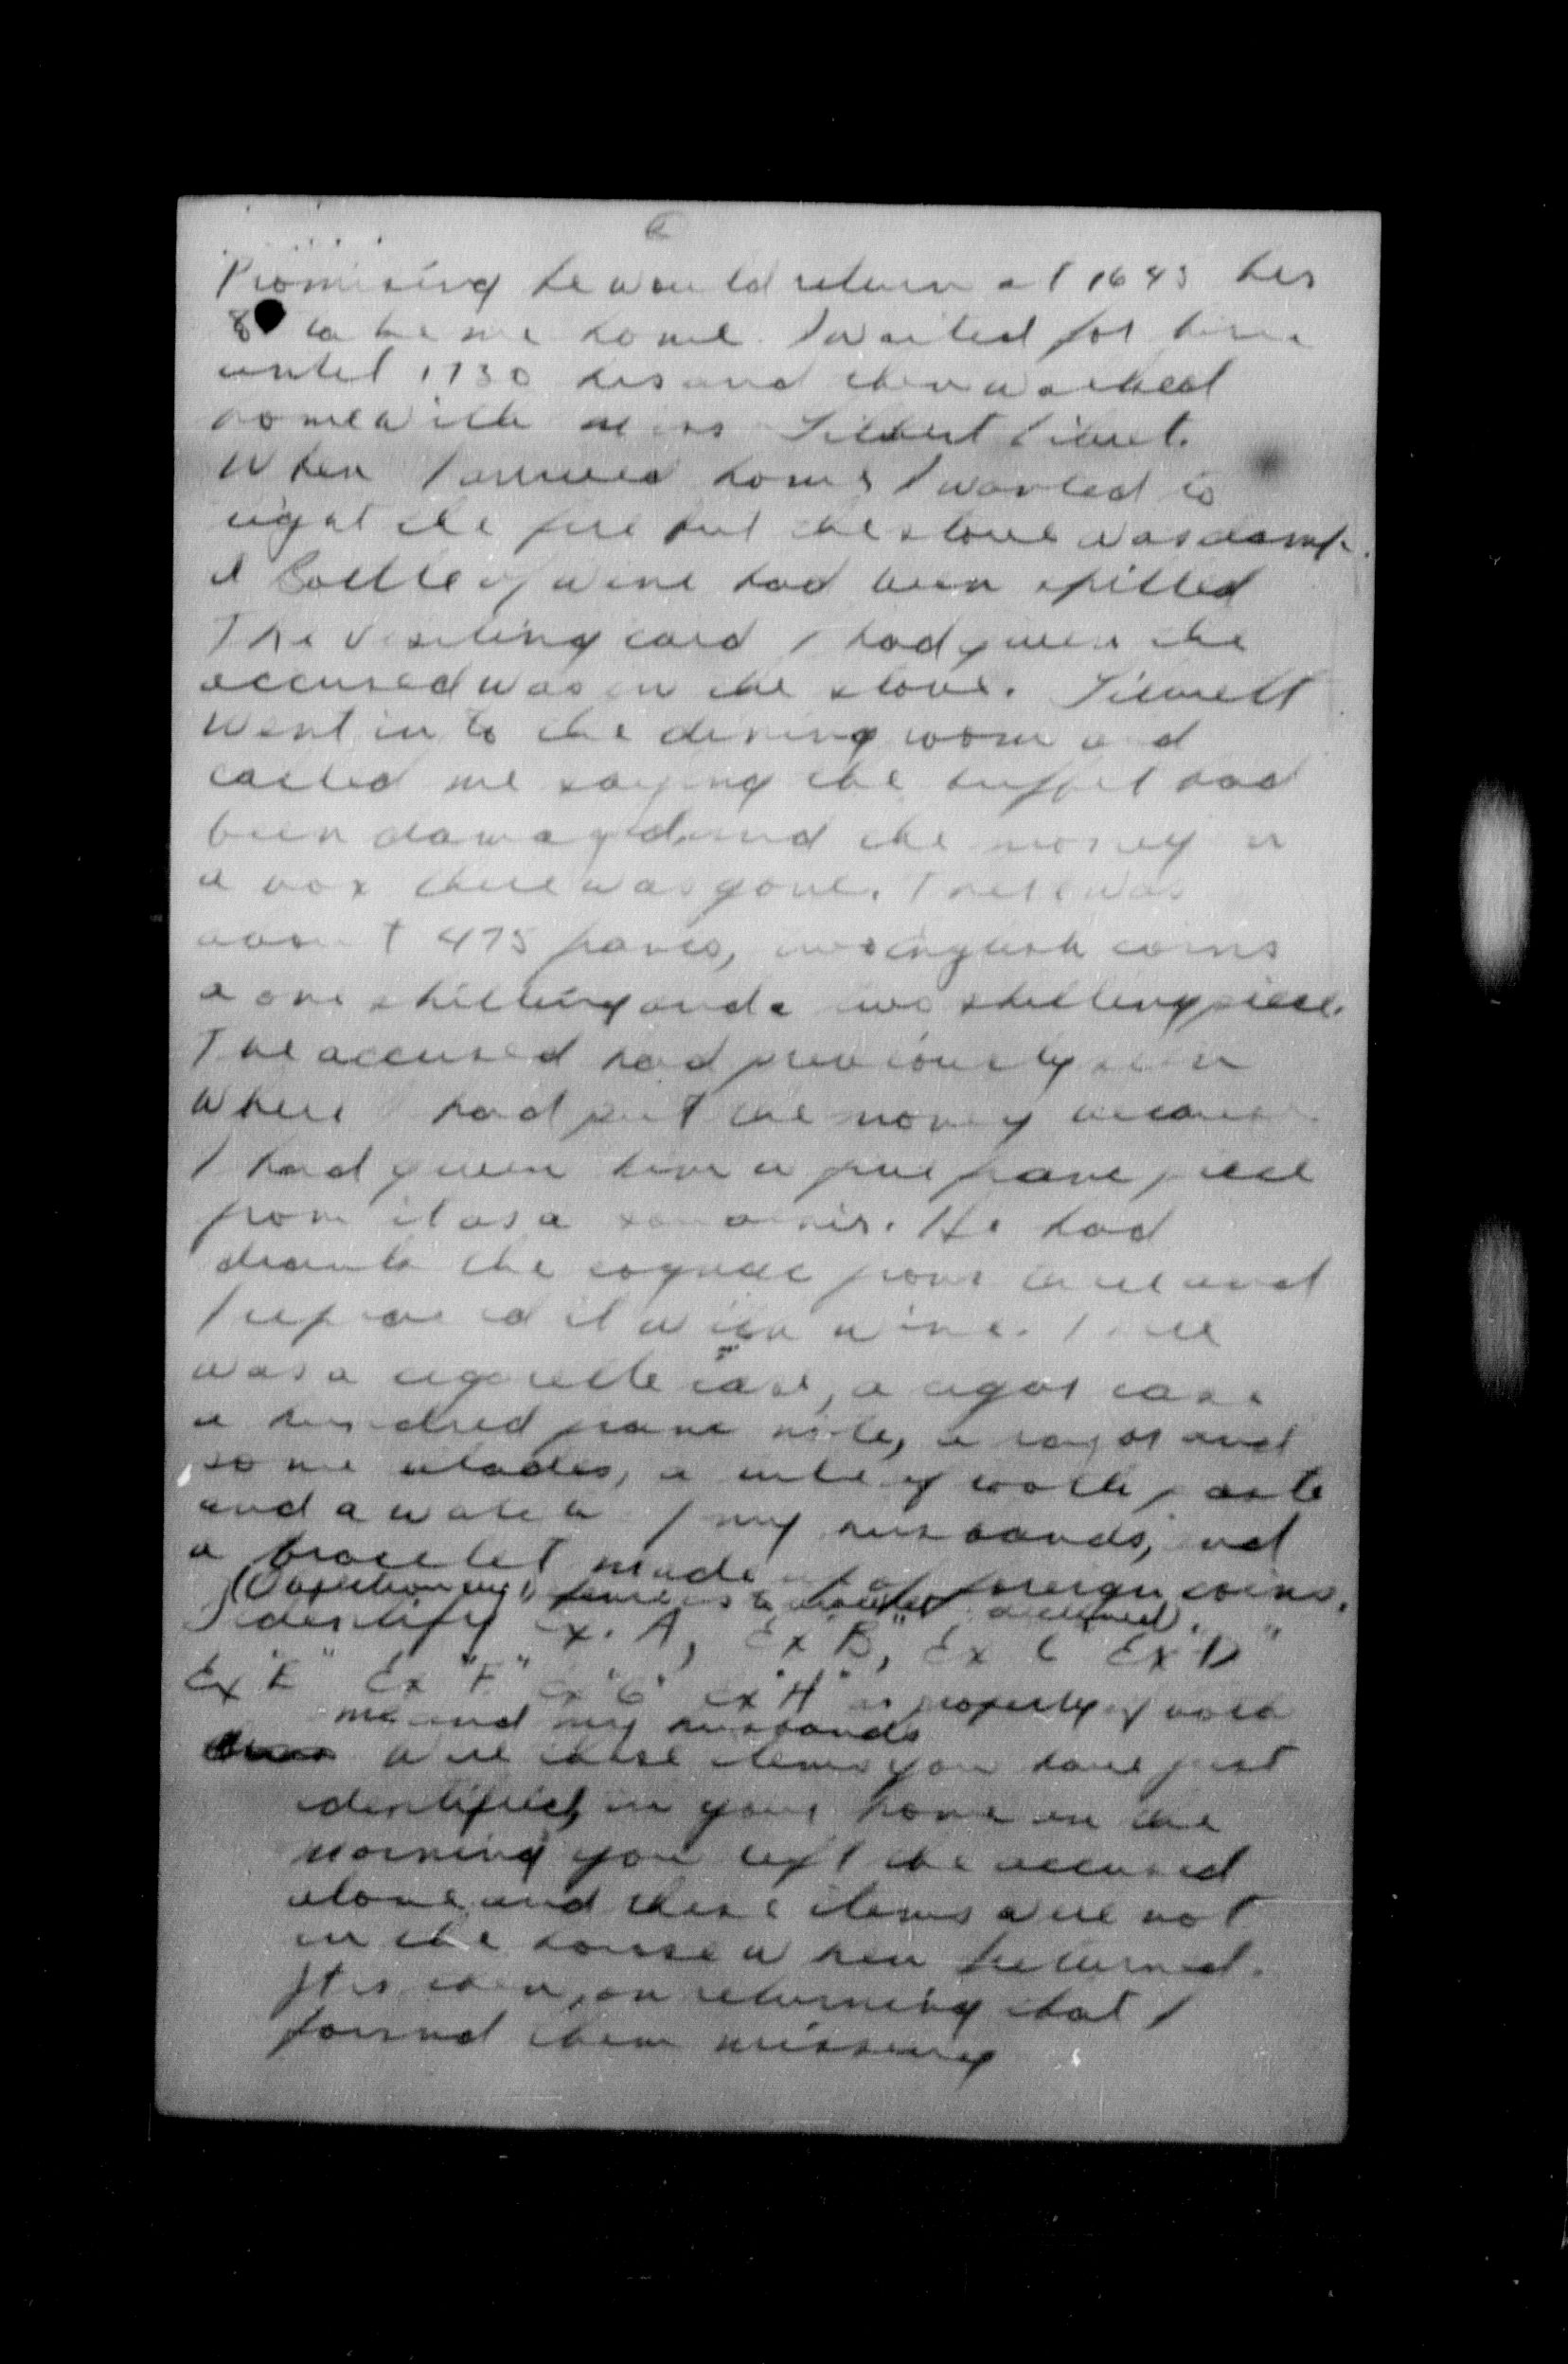 Promising he would return at 1645 hrs
to take me home. I waited for him
until 1730 hrs and then walked
home with miss
When I arrived home I wanted to
light the fire but the stove was damp.
A Bottle of wine had been spilled
The visiting card I had given the
accused was on the stove.
went in to the dining room and
called me saying the buffet had
been damaged and the money in
a box there was gone. There was
about 475 francs, two english coins
a one shilling and a two shilling piece.
The accused had previously seen
where I had put the money because
I had given him a five franc piece
from it as a souvenir. He had
drank the cognac from and
I replaced it with wine. There
was a cigarette case, a cigar case
a hundred franc note, a razor and
some blades, a tube of tooth paste
and a watch of my husbands, and
a bracelet made up of foreign coins.
I identify Ex. A, Ex "B", Ex C Ex "D"
Ex "E" Ex "F" Ex "G" Ex "H" as property of both
me and my husbands
Were these items you have just
identified, in your home on the
morning you left the accused
alone and these items were not
in the house when I returned.
It is then, on returning that I
found them missing